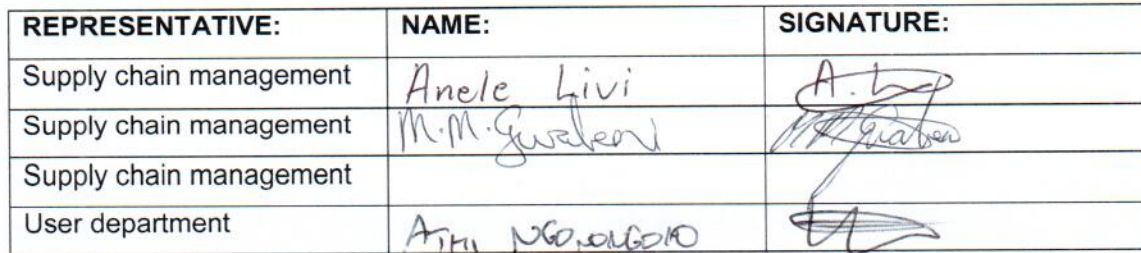 REPRESENTATIVE: NAME: SIGNATURE:
Supply chain management Anele Livi A.
Supply chain management M.M.
Supply chain management
User department